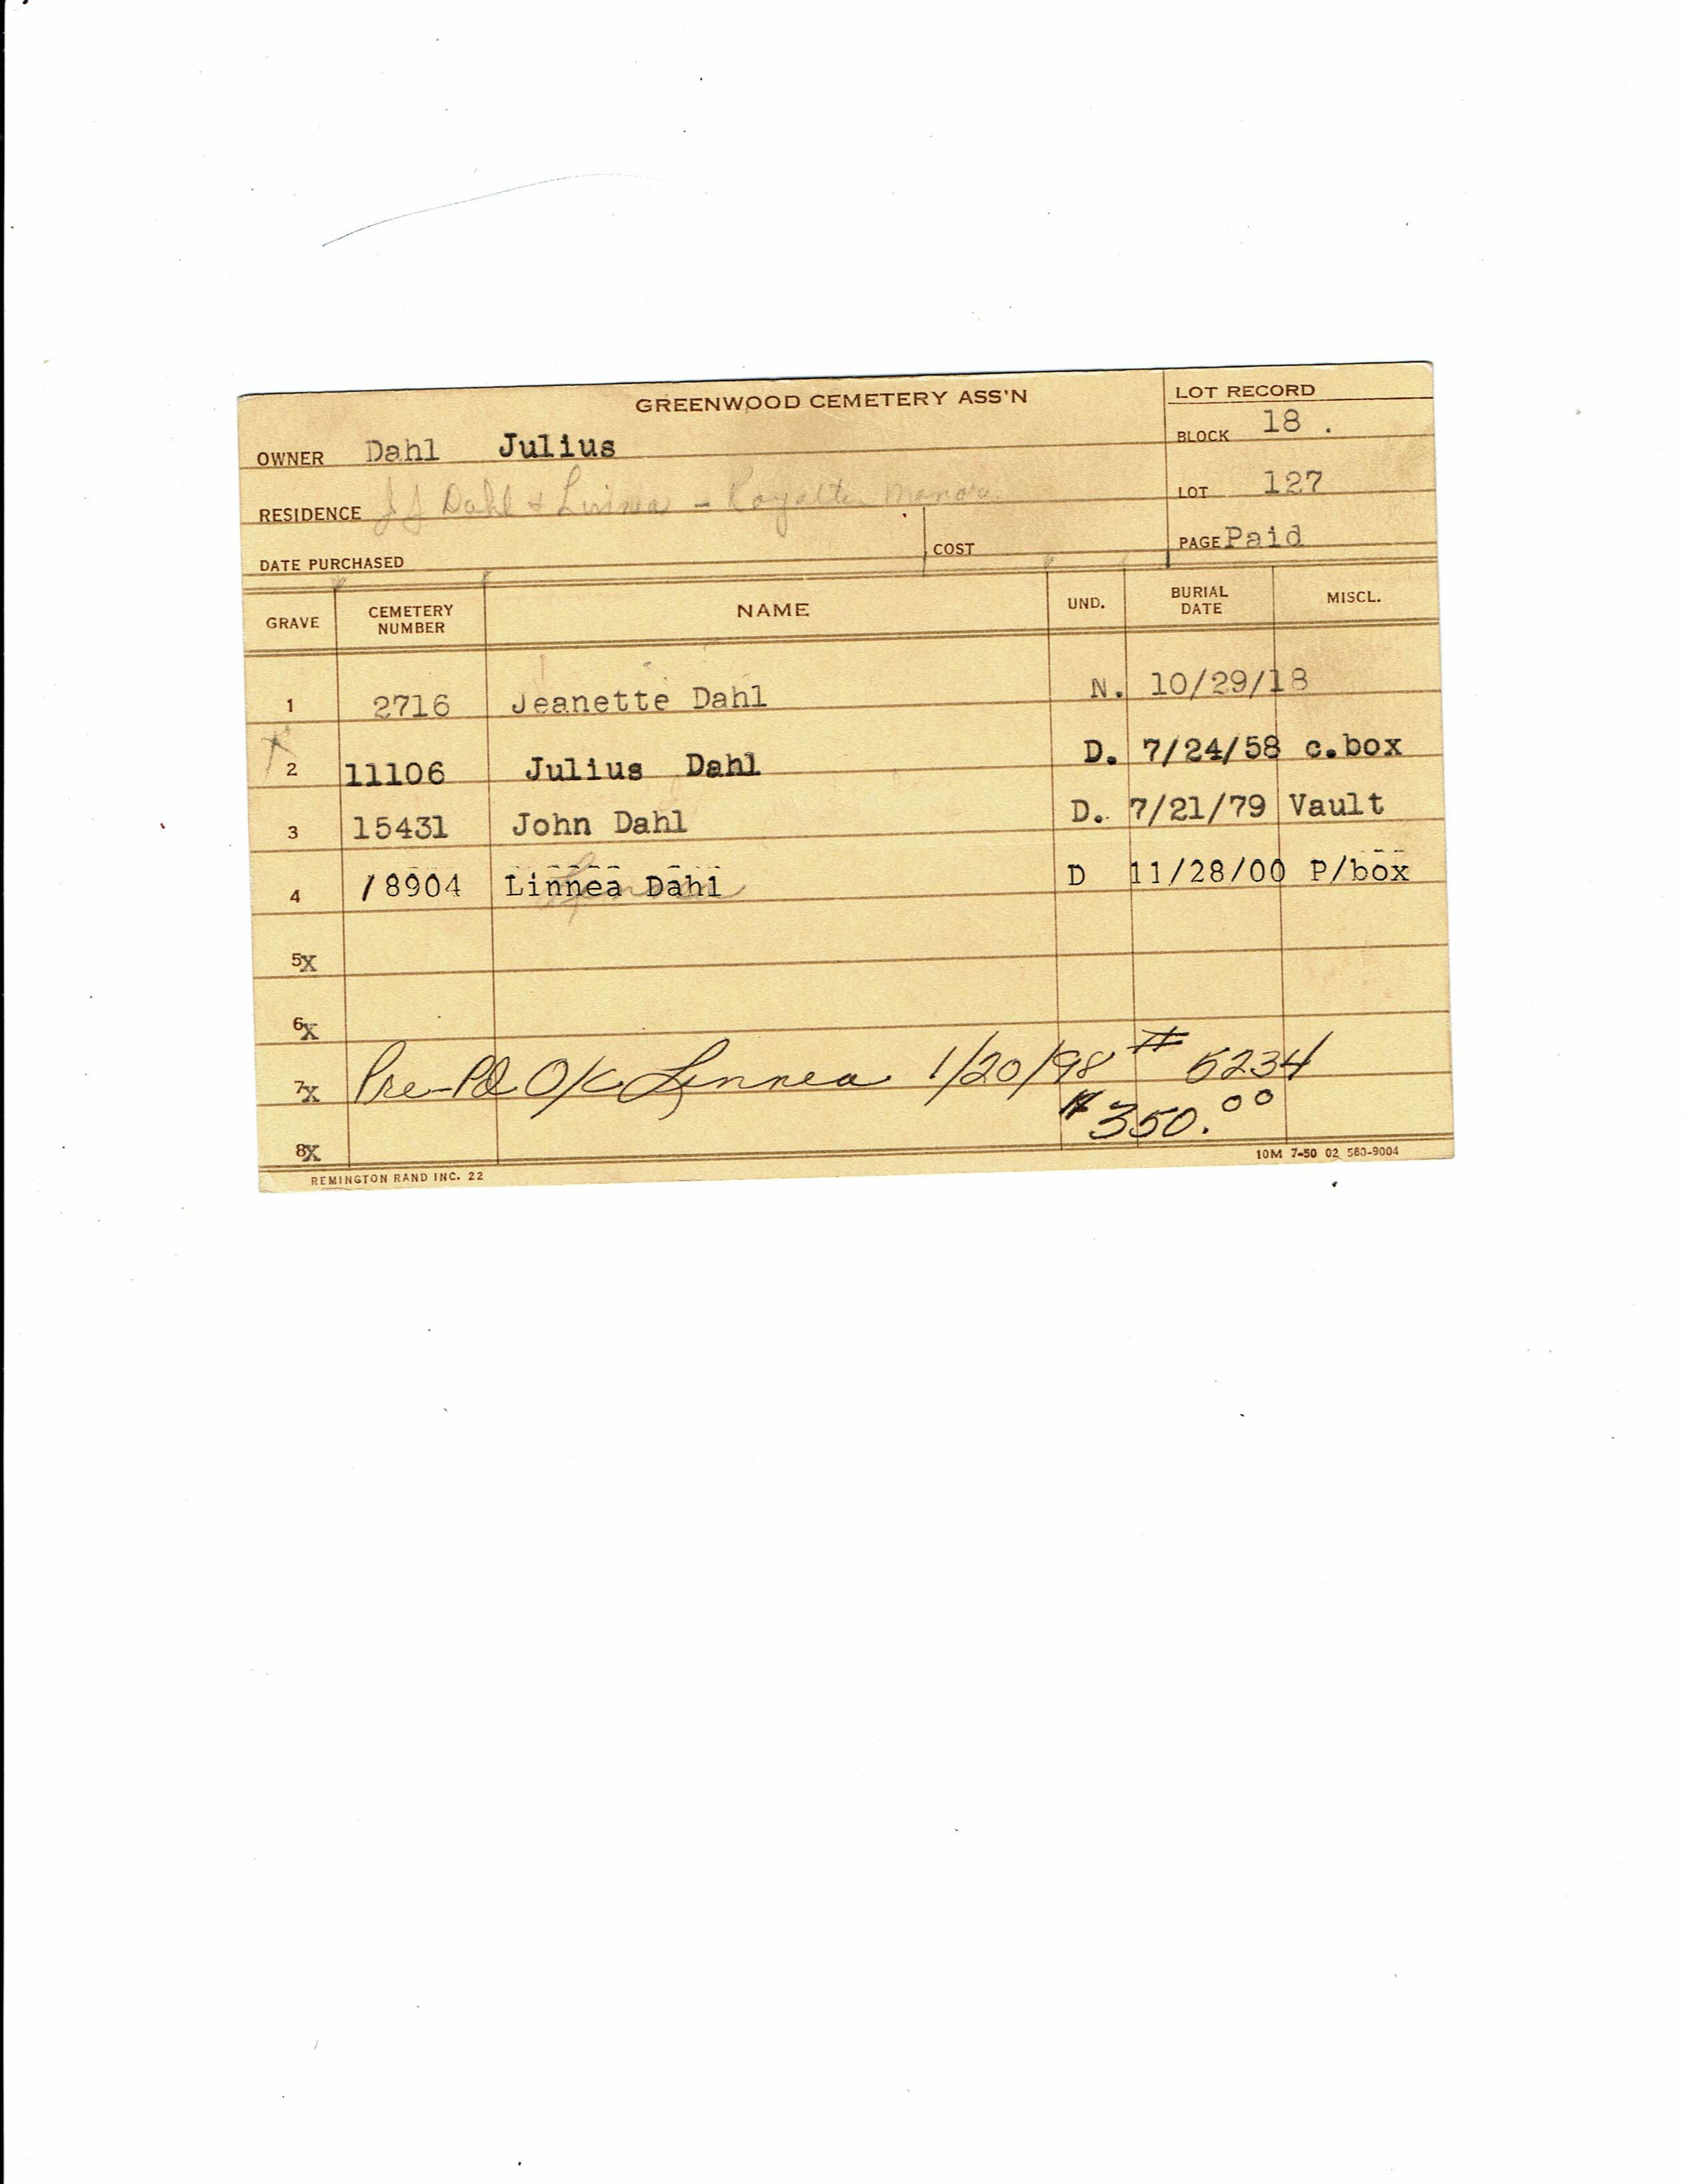 GREENWOOD CEMETERY ASS'N
LOT RECORD
OWNER Dahl Julius
BLOCK 18 .
RESIDENCE J J Dahl & Linnea - Royalton Manor
LOT 127
DATE PURCHASED
COST
PAGE Paid
GRAVE CEMETERY NUMBER NAME UND. BURIAL DATE MISCL.
1 2716 Jeanette Dahl N. 10/29/18
2 11106 Julius Dahl D. 7/24/58 c.box
3 15431 John Dahl D. 7/21/79 Vault
4 18904 Linnea Dahl D 11/28/00 P/box
5X
6X
7X Pre-Pd O/C Linnea 1/20/98 # 5234
$350.00
8X
REMINGTON RAND INC. 22
10M 7-50 02 560-9004